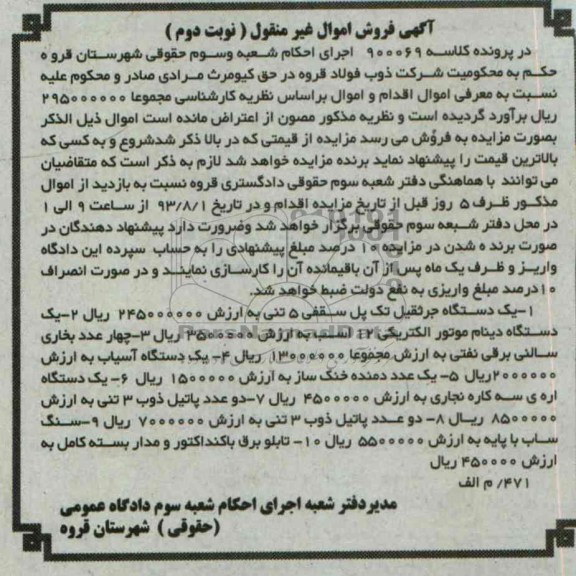 آگهی فروش اموال غیر منقول ( نوبت دوم )
در پرونده کلاسه ۹۰۰۰۶۹ اجرای احکام شعبه وسوم حقوقی شهرستان قرو ه
حکم به محکومیت شرکت ذوب فولاد قروه در حق کیومرث مرادی صادر و محکوم علیه
نسبت به معرفی اموال اقدام و اموال براساس نظریه کارشناسی مجموعا ۲۹۵۰۰۰۰۰۰
ریال برآورد گردیده است و نظریه مذکور مصون از اعتراض مانده است اموال ذیل الذکر
بصورت مزایده به فروش می رسد مزایده از قیمتی که در بالا ذکر شدشروع و به کسی که
بالاترین قیمت را پیشنهاد نماید برنده مزایده خواهد شد لازم به ذکر است که متقاضیان
می توانند با هماهنگی دفتر شعبه سوم حقوقی دادگستری قروه نسبت به بازدید از اموال
مذکور ظرف ۵ روز قبل از تاریخ مزایده اقدام و در تاریخ ۹۳/۸/۱ از ساعت ۹ الی ۱
در محل دفتر شبعه سوم حقوقی برگزار خواهد شد وضرورت دارد پیشنهاد دهندگان در
صورت برند ه شدن در مزایده ۱۰ درصد مبلغ پیشنهادی را به حساب سپرده این دادگاه
واریز و ظرف یک ماه پس از آن باقیمانده آن را کارسازی نمایند و در صورت انصراف
۱۰درصد مبلغ واریزی به نفع دولت ضبط خواهد شد.
۱-یک دستگاه جرثقیل تک پل سقفی ۵ تنی به ارزش ۲۴۵۰۰۰۰۰۰ ریال ۲-یک
دستگاه دینام موتور الکتریکی ۱۲ اسب به ارزش ۳۵۰۰۰۰۰ ریال ۳-چهار عدد بخاری
سالنی برقی نفتی به ارزش مجموعا ۱۳۰۰۰۰۰۰ ریال ۴- یک دستگاه آسیاب به ارزش
۲۰۰۰۰۰۰ریال ۵- یک عدد دمنده خنک ساز به ارزش ۱۵۰۰۰۰۰ ریال ۶- یک دستگاه
اره ی سه کاره نجاری به ارزش ۴۵۰۰۰۰۰ ریال ۷-دو عدد پاتیل ذوب ۳ تنی به ارزش
۸۵۰۰۰۰۰ ریال ۸- دو عدد پاتیل ذوب ۳ تنی به ارزش ۷۰۰۰۰۰۰ ریال ۹-سنگ
ساب با پایه به ارزش ۵۵۰۰۰۰۰ ریال ۱۰- تابلو برق باکنداکتور و مدار بسته کامل به
ارزش ۴۵۰۰۰۰ ریال
۴۷۱/ م الف
مدیردفتر شعبه اجرای احکام شعبه سوم دادگاه عمومی
(حقوقی ) شهرستان قروه